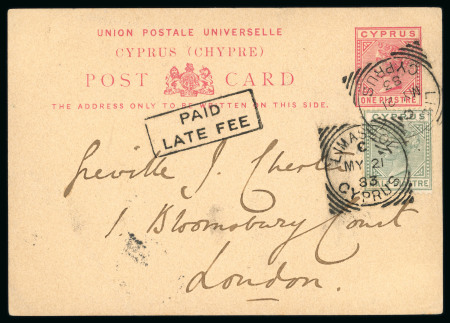 UNION POSTALE UNIVERSELLE
CYPRUS (CHYPRE)
POST CARD
THE ADDRESS ONLY TO BE WRITTEN ON THIS SIDE.
CYPRUS
ONE PIASTRE
CYPRUS
PAID
LATE FEE
CYPRUS
LIMASSOL
MY 21
83
CYPRUS
Greville J.
1. Bloomsbury Court
London.